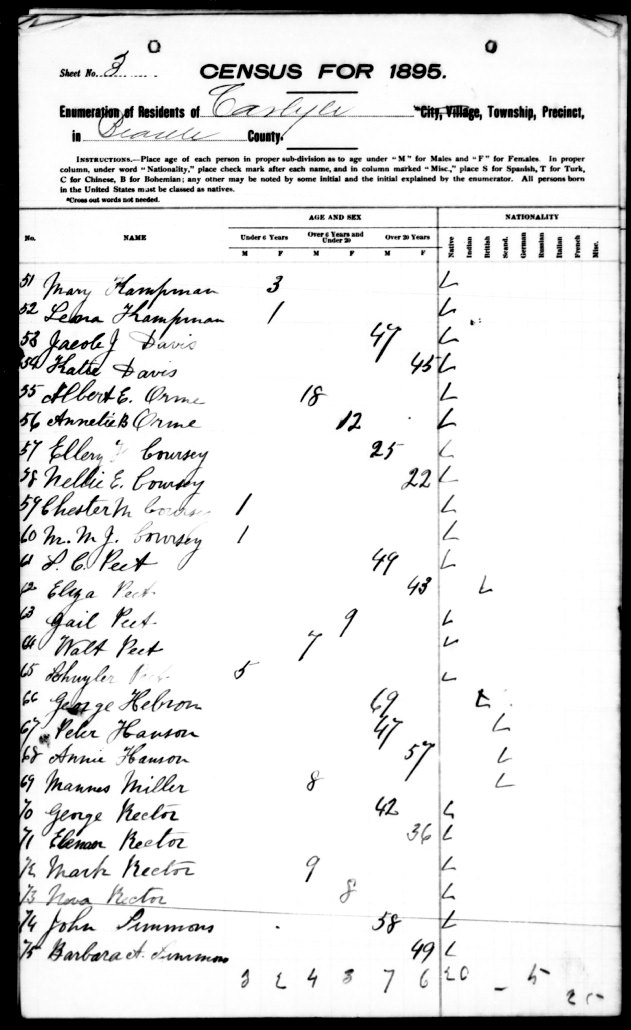 Sheet No. 3
CENSUS FOR 1895.
Enumeration of Residents of Carlyle *City, Village, Township, Precinct,
in Beadle County.
INSTRUCTIONS.—Place age of each person in proper sub-division as to age under "M" for Males and "F" for Females. In proper
column, under word "Nationality," place check mark after each name, and in column marked "Misc.," place S for Spanish, T for Turk,
C for Chinese, B for Bohemian; any other may be noted by some initial and the initial explained by the enumerator. All persons born
in the United States must be classed as natives.
*Cross out words not needed.
No. NAME AGE AND SEX NATIONALITY
Under 6 Years Over 6 Years and Under 20 Over 20 Years Native Indian British Scand. German Russian Italian French Misc.
M F M F M F
51 Mary Kampman 3 ✓
52 Lena Kampman 1 ✓
53 Jacob J Davis 47 ✓
54 Katie Davis 45 ✓
55 Albert E. Orme 18 ✓
56 Annetie B Orme 12 ✓
57 Ellery Coursey 25 ✓
58 Nellie E. Coursey 22 ✓
59 Chester M Coursey 1 ✓
60 M. M. J. Coursey 1 ✓
61 L. C. Peet 49 ✓
62 Eliza Peet 43 ✓
63 Gail Peet 9 ✓
64 Walt Peet 7 ✓
65 Shuyler Peet 5 ✓
66 George Hebron 69 ✓
67 Peter Hanson 47 ✓
68 Annie Hanson 57 ✓
69 Mannes Miller 8 ✓
70 George Rector 42 ✓
71 Rector 36 ✓
72 Mark Rector 9 ✓
73 Nova Rector 8 ✓
74 John Simmons 58 ✓
75 Barbara A. Simmons 49 ✓
3 2 4 3 7 6 20 - 5
25